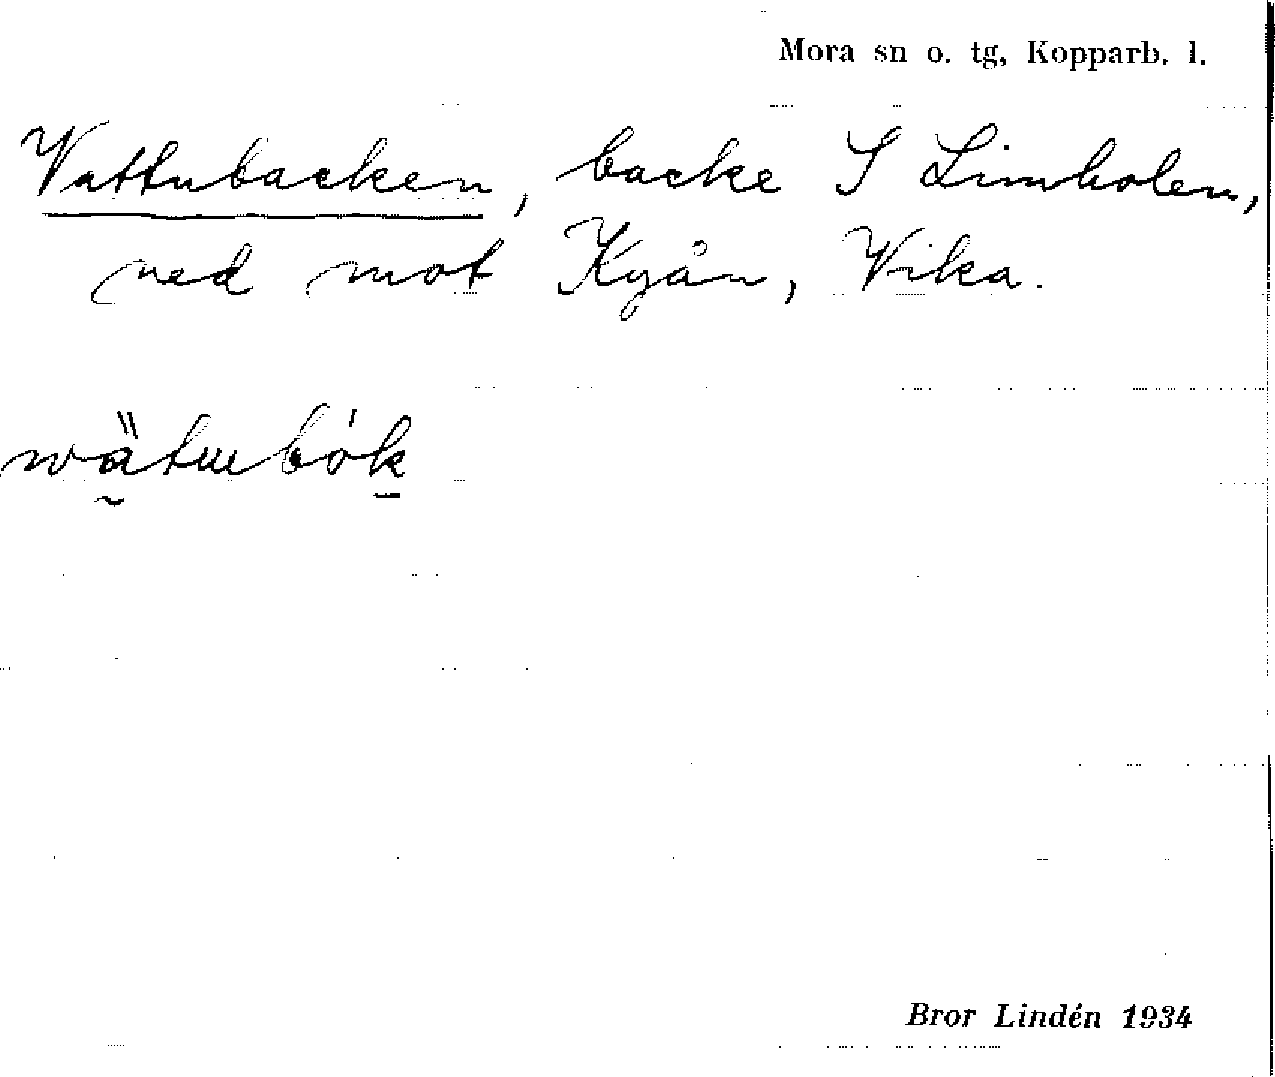 Mora sn o. tg, Kopparb. l.
Vattubacken, backe S Limholen,
ned mot Kyån, Vika.
Bror Lindén 1934